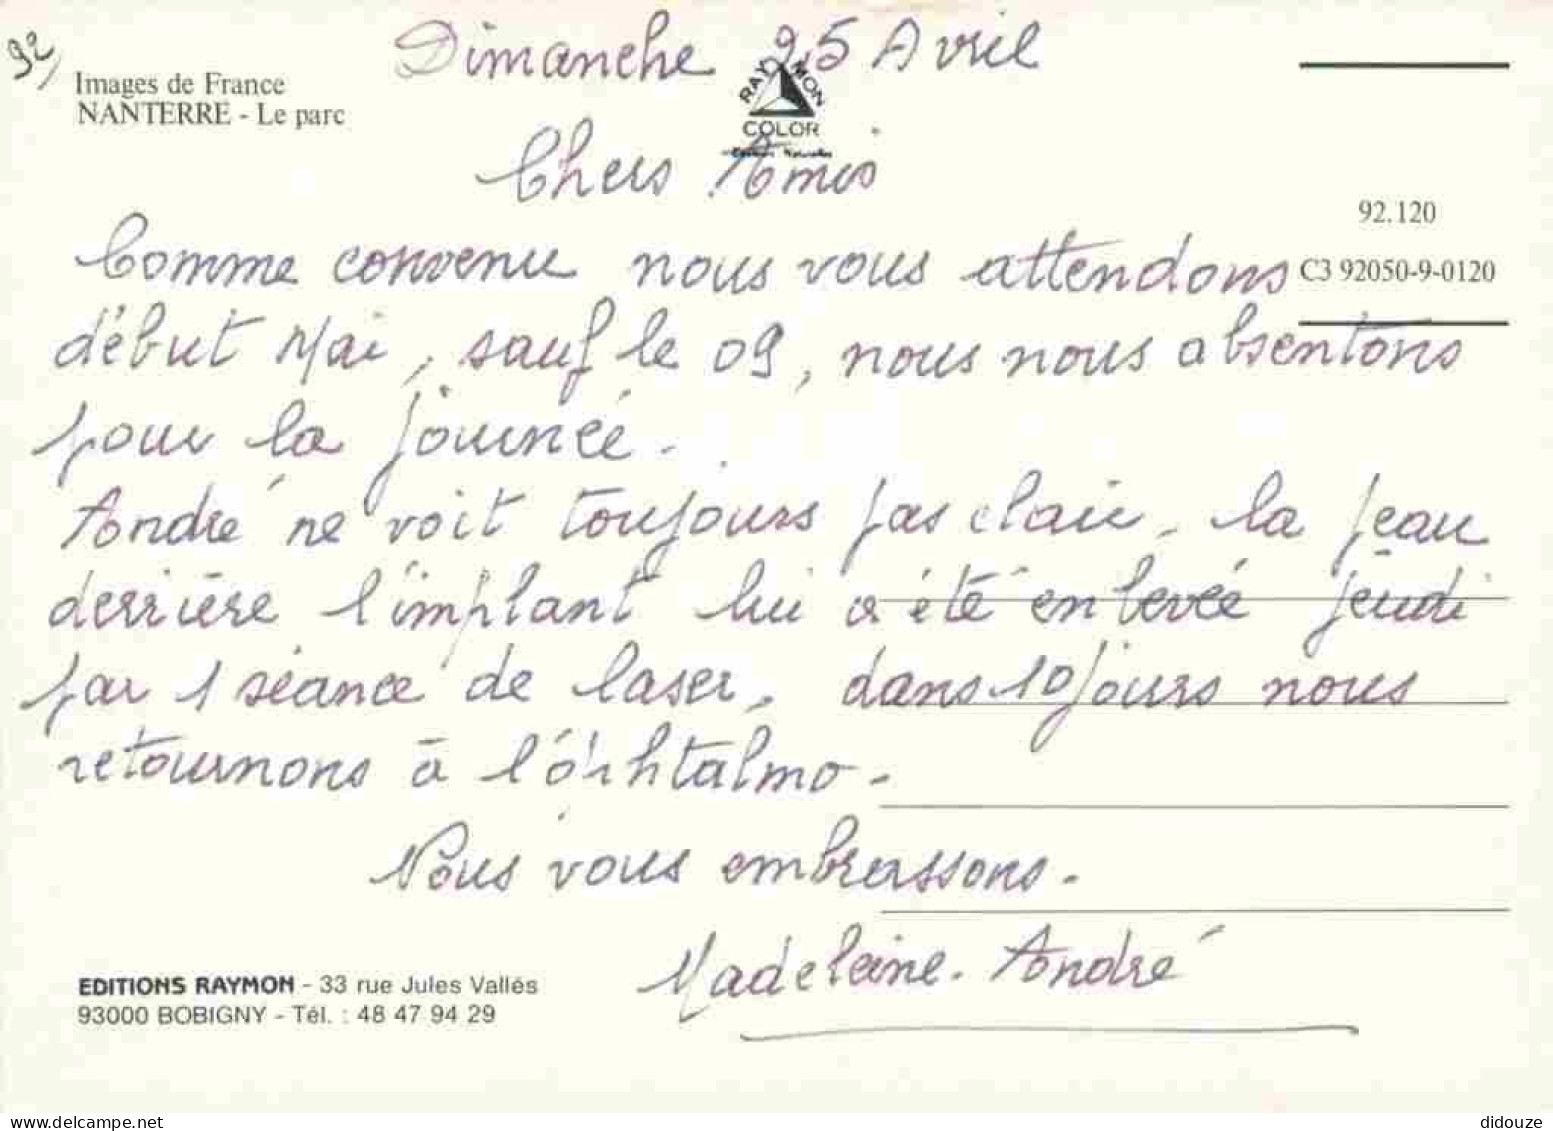 92
Dimanche 25 Avril
Images de France
NANTERRE - Le parc
RAYMON
COLOR
Couleurs Naturelles
Chers Amis
92.120
Comme convenu nous vous attendons
C3 92050-9-0120
début Mai, sauf le 09, nous nous absentons
pour la journée.
André ne voit toujours pas clair, la peau
derrière l'implant lui a été enlevée jeudi
par 1 séance de laser, dans 10 jours nous
retournons à l'óphtalmo.
Nous vous embrassons.
Madeleine. André
EDITIONS RAYMON - 33 rue Jules Vallés
93000 BOBIGNY - Tél. : 48 47 94 29
didouze